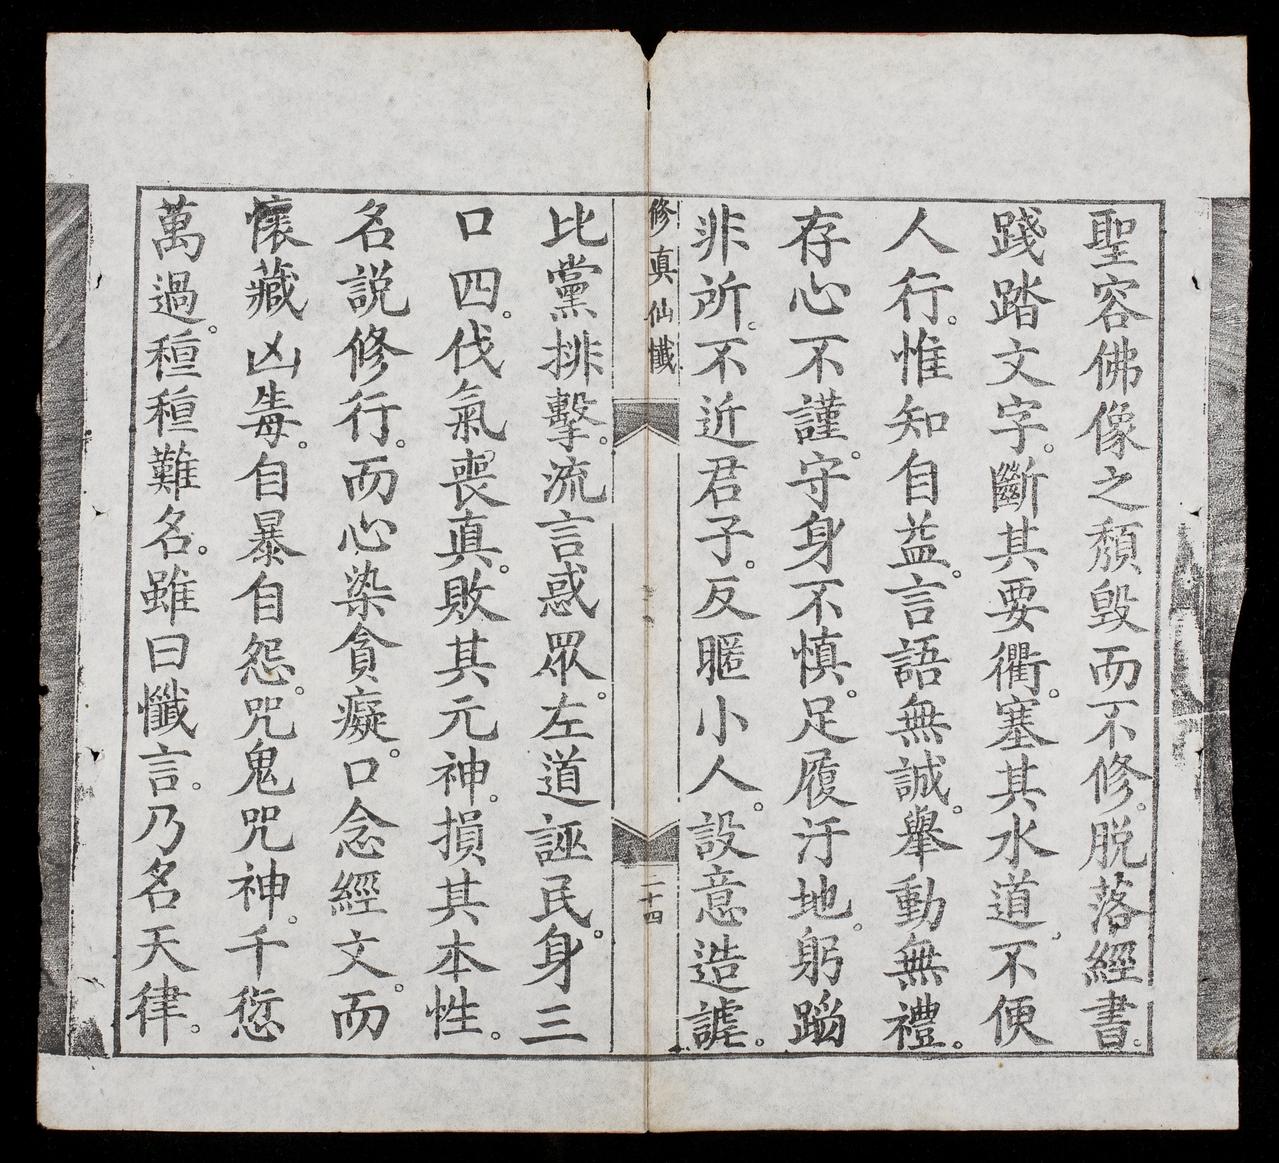 聖容佛像之頹毀而不修。脱落經書。
踐踏文字。斷其要衢。塞其水道。不便
人行。惟知自益。言語無誠。舉動無禮。
存心不謹。守身不慎。足履汙地。躬蹈
非所。不近君子。反暱小人。設意造謔。
修真仙懺
二十四
比黨排擊。流言惑眾。左道誣民。身三
口四。伐氣喪真。敗其元神。損其本性。
名説修行。而心染貪癡。口念經文。而
懷藏凶毒。自暴自怨。咒鬼咒神。千愆
萬過。種種難名。雖曰懺言。乃名天律。